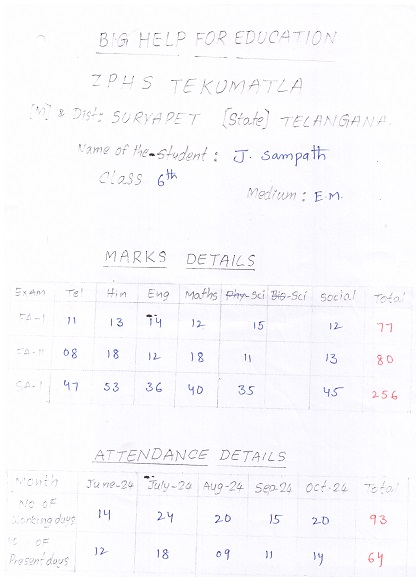 BIG HELP FOR EDUCATION
ZPHS TEKUMATLA
[M] & Dist: SURYAPET [State] TELANGANA.
Name of the Student : J. Sampath
Class 6th
Medium : E.M.
MARKS DETAILS
Exam Tel Hin Eng Maths Phy-Sci Bio-Sci Social Total
FA-I 11 13 14 12 15 12 77
FA-II 08 18 12 18 11 13 80
SA-I 47 53 36 40 35 45 256
ATTENDANCE DETAILS
Month June-24 July-24 Aug-24 Sep-24 Oct-24 Total
No of
Working days 14 24 20 15 20 93
No of
Present days 12 18 09 11 14 64